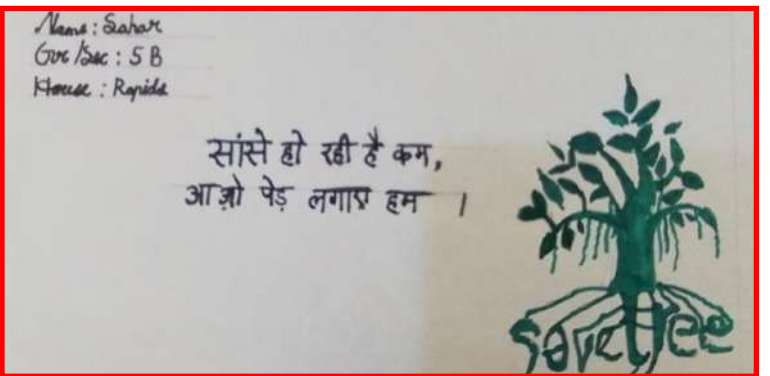 Name: Sahar
Gre/Sec: 5 B
House: Rapids
सांसे हो रही है कम,
आओ पेड़ लगाए हम ।
save tree